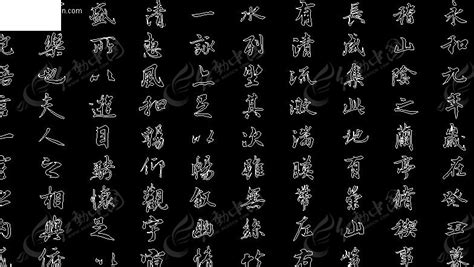 永和九年歲在癸丑暮
稽山陰之蘭亭脩稧事
長咸集此地有崇山峻
有清流激湍映帶左右
水列坐其次雖無絲竹
一詠亦足以暢敘幽情
清惠風和暢仰觀宇宙
盛所以遊目騁懷足以
樂也夫人之相與俯
言一